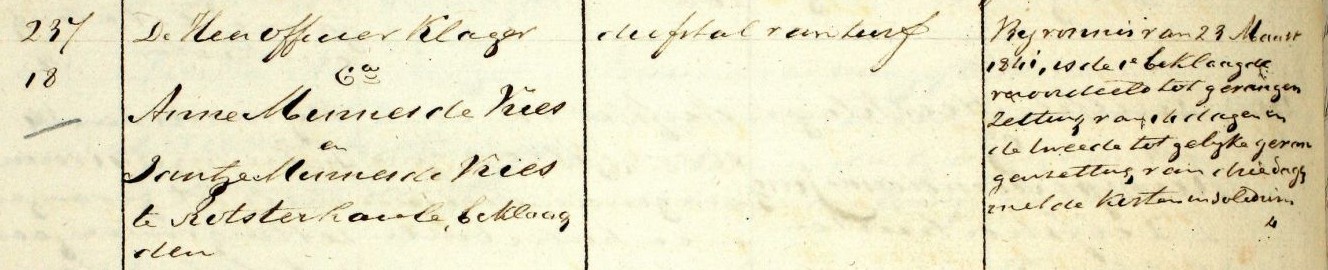 237
18
De Heer officier Klager
Ca
Anne Meines de Vries
en
Jantje Meines de Vries
te Rotsterhaule, beklaag
den
diefstal van turf
By vonnis van 23 Maart
1841, is de 1e beklaagde
veroordeeld tot gevangen
Zetting van dagen en
de tweede tot gelyke gevan
genzetting van drie dagen
met de kosten in solidum